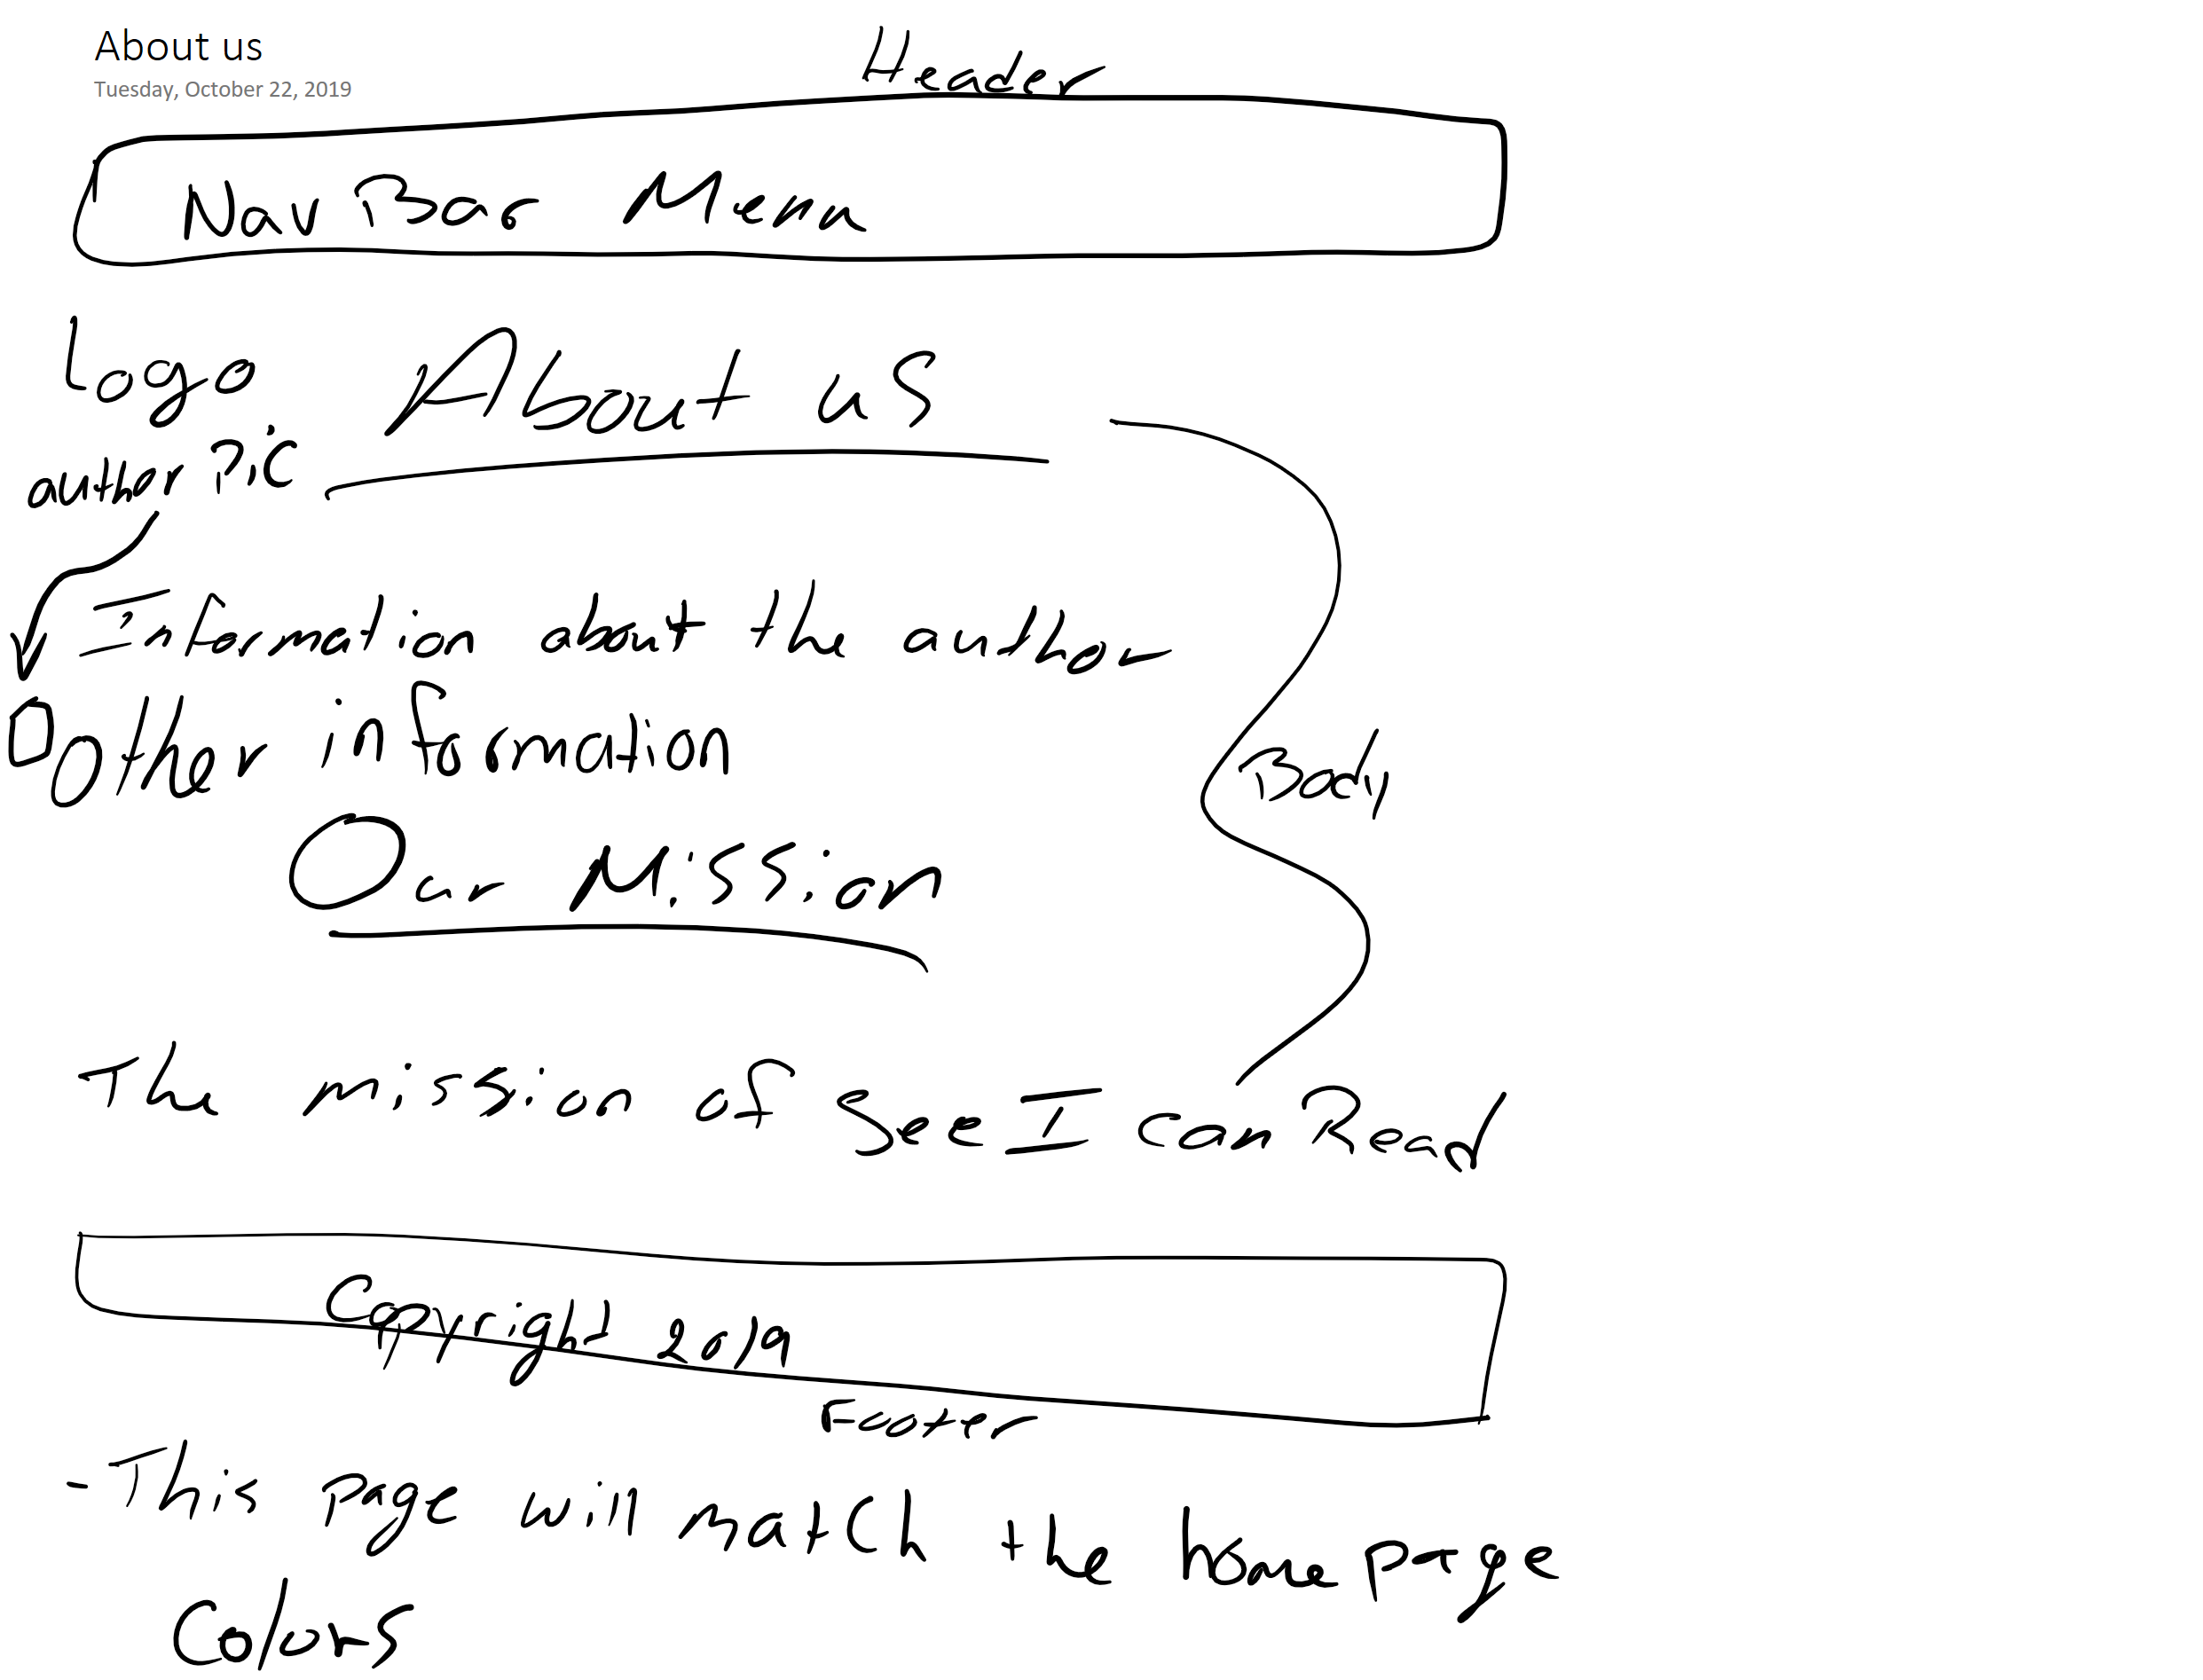 About us
Tuesday, October 22, 2019
Header
Nav Bar Menu
Logo
About us
author Pic
Information about the author
Other information
Body
Our Mission
The mission of See I can Read
Copyright 2019
Footer
- This page will match the home page
Colors